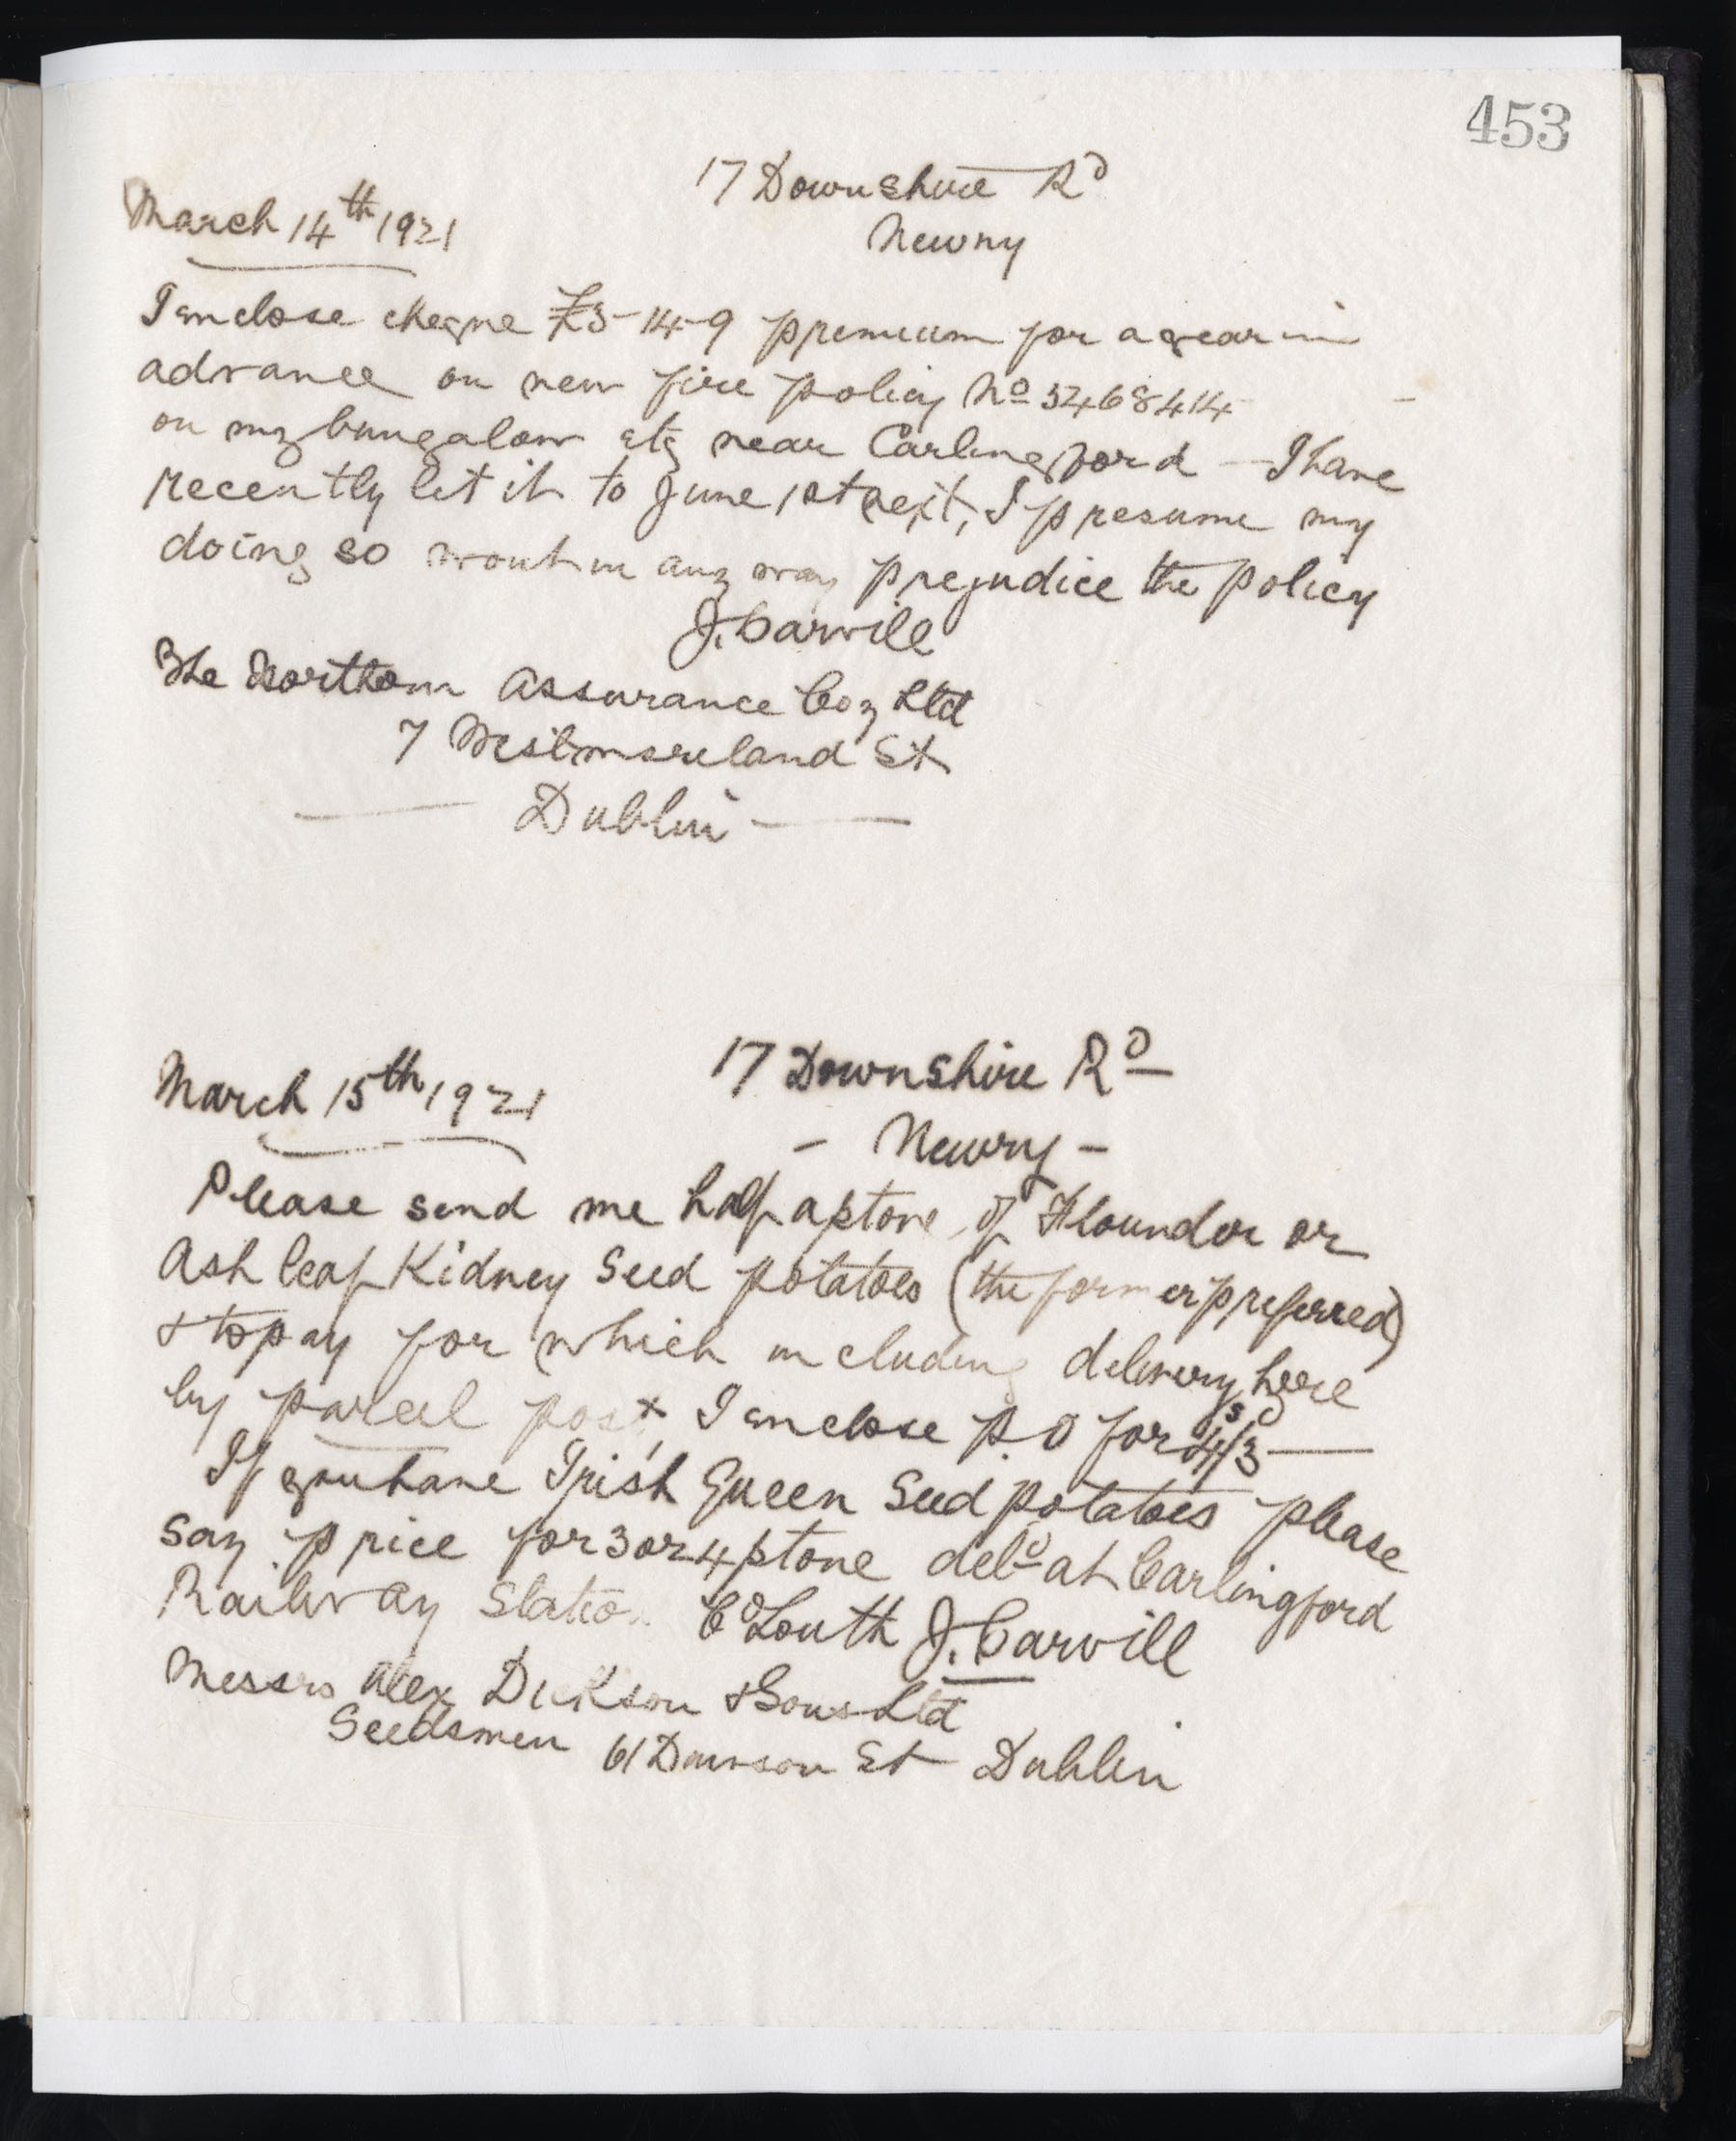 453
17 Downshire Rd
March 14th 1921
Newry
I enclose cheque £3-14-9 premium for a year in
advance on new fire policy No 5468414
on my bungalow etc near Carlingford - I have
recently let it to June 1st next, I presume my
doing so wont in any way prejudice the policy
J. Carvill
The Northern Assurance Coy Ltd
7 Westmoreland St
Dublin
17 Downshire Rd
March 15th 1921
- Newry -
Please send me half a stone of Flounder or
Ash leaf Kidney Seed potatoes (the former preferred)
& to pay for which including delivery here
by parcel post I enclose P.O for 4s/3
If you have Irish Queen Seed potatoes please
say price for 3 or 4 stone deld at Carlingford
Railway Station Co Louth J. Carvill
Messrs Alex Dickson & Sons Ltd
Seedsmen 61 Dawson St Dublin